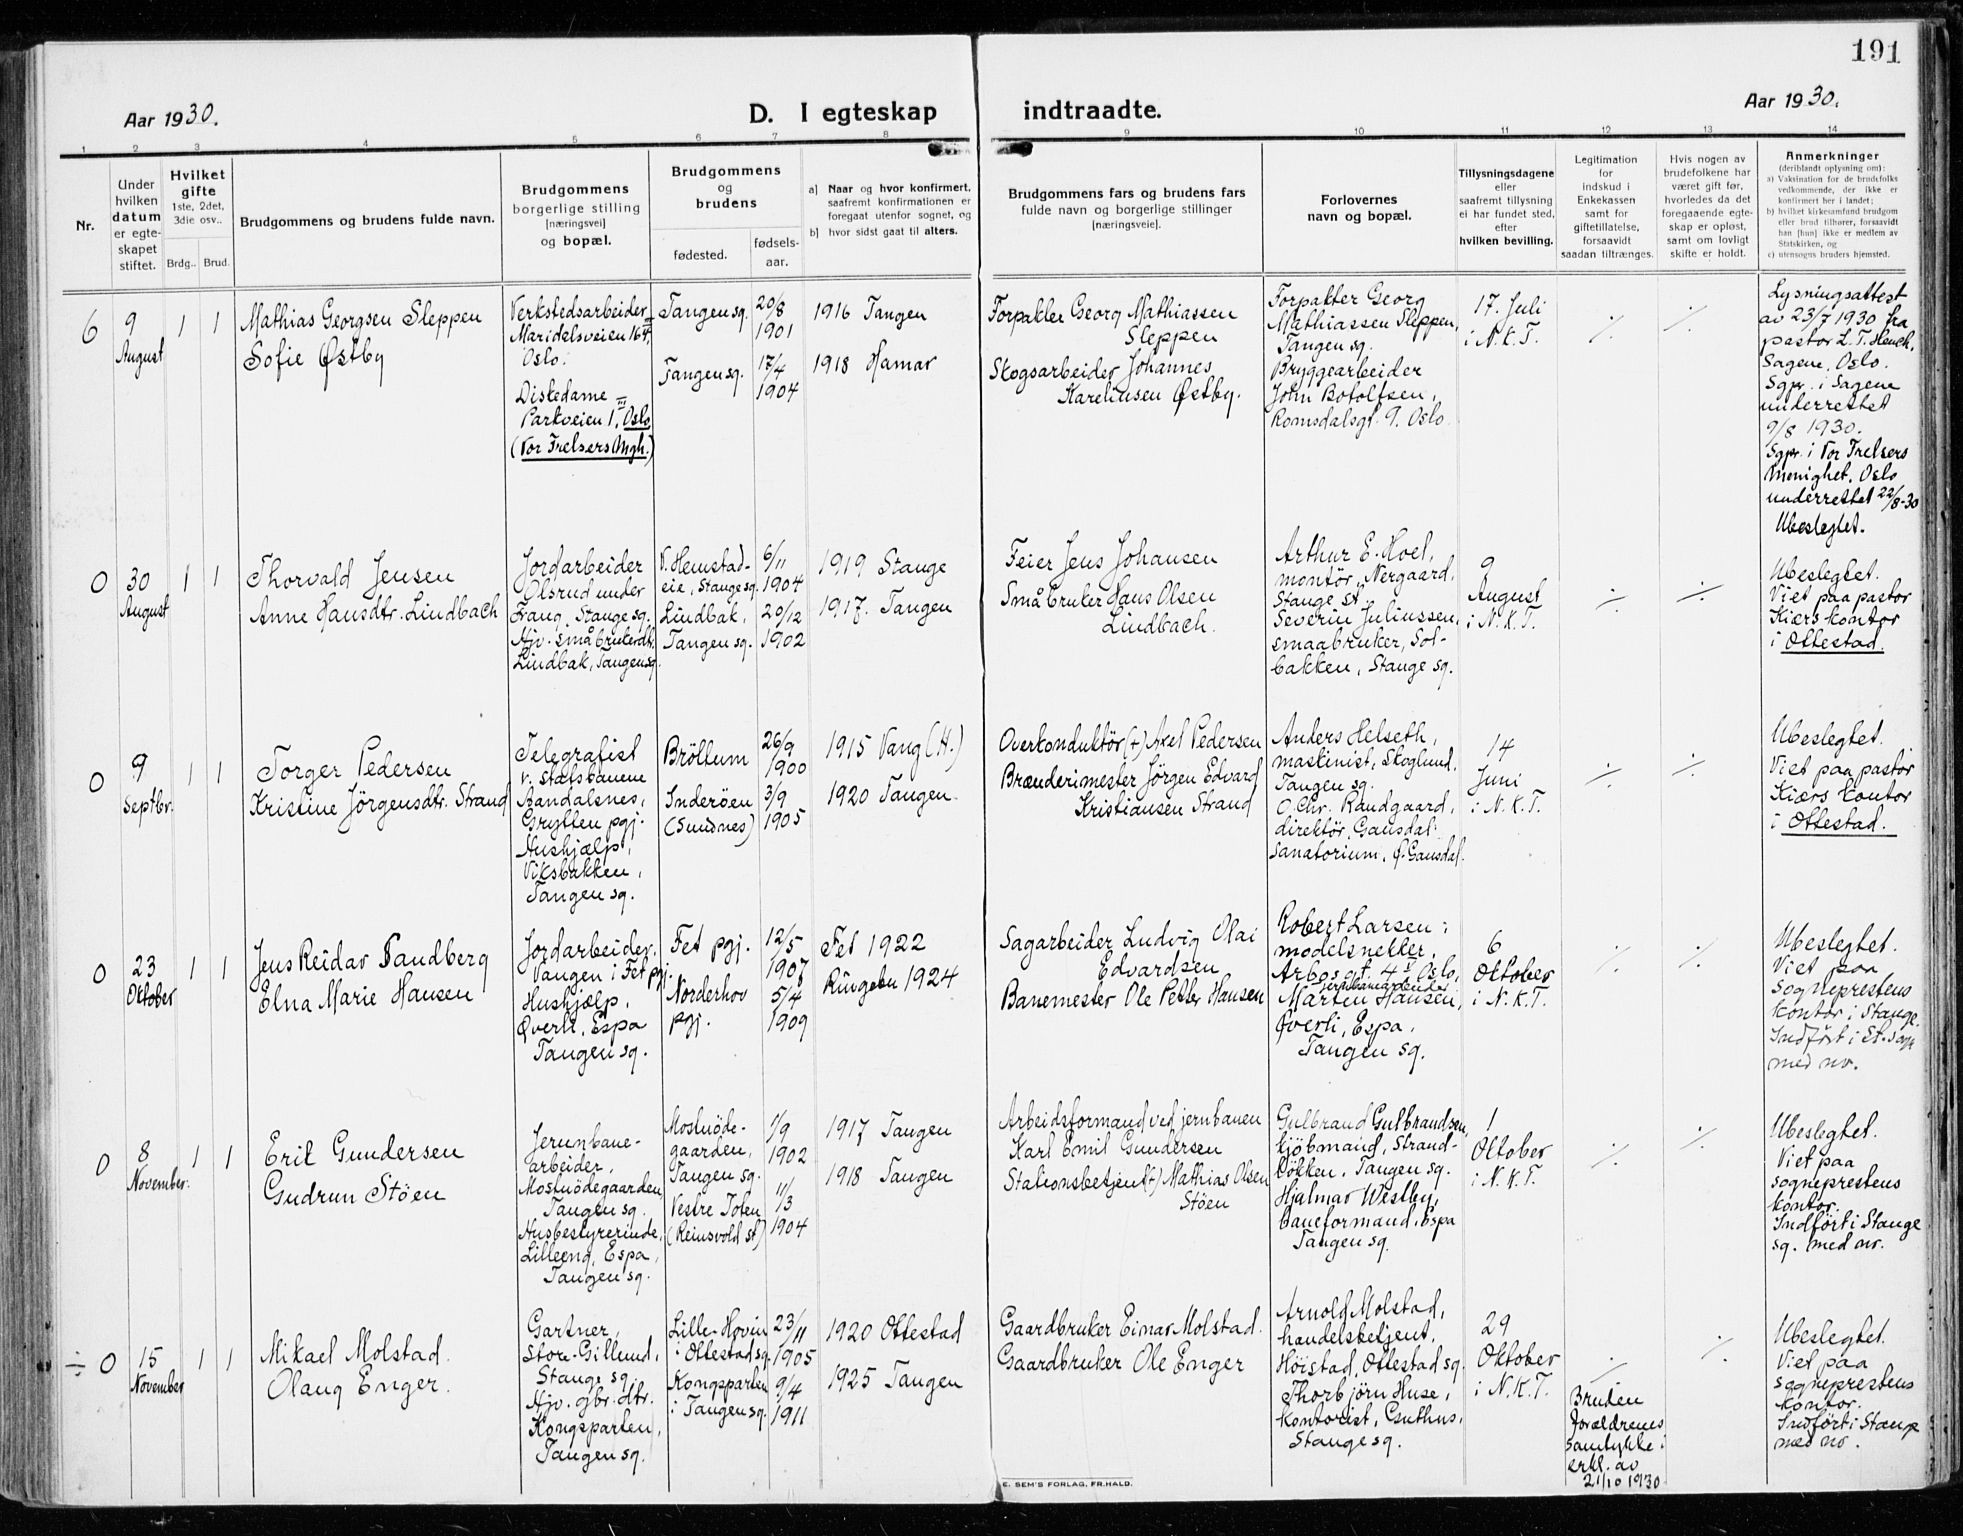 191
Aar 1930.
D. I egteskap indtraadte.
Aar 1930.
1 2 3 4 5 6 7 8 9 10 11 12 13 14
Nr.
Under
hvilken
datum
er egte-
skapet
stiftet.
Hvilket
gifte
1ste, 2det,
3die osv..
Brdg..
Brud.
Brudgommens og brudens fulde navn.
Brudgommens
borgerlige stilling
[næringsvei]
og bopæl.
Brudgommens
og
brudens
fødested.
fødsels-
aar.
a) Naar og hvor konfirmert,
saafremt konfirmationen er
foregaat utenfor sognet, og
b) hvor sidst gaat til alters.
Brudgommens fars og brudens fars
fulde navn og borgerlige stillinger
[næringsveie].
Forlovernes
navn og bopæl.
Tillysningsdagene
eller
saafremt tillysning
ei har fundet sted,
efter
hvilken bevilling.
Legitimation
for
indskud i
Enkekassen
samt for
giftetillatelse,
forsaavidt
saadan tiltrænges.
Hvis nogen av
brudefolkene har
været gift før,
hvorledes da det
foregaaende egte-
skap er opløst,
samt om lovligt
skifte er holdt.
Anmerkninger
(deriblandt oplysning om):
a) Vaksination for de brudefolks
vedkommende, der ikke er
konfirmert her i landet;
b) hvilket kirkesamfund brudgom
eller brud tilhører, forsaavidt
han [hun] ikke er medlem av
Statskirken, og
c) utensogns bruders hjemsted.
6
9
August
1
1
Mathias Georgsen Sleppen
Sofie Østby
Verkstedsarbeider
Maridelsveien 16
Oslo.
Diskedame
Parkveien 1, Oslo
(Vor Frelsers Mgh.)
Tangen sg.
Tangen sg.
20/8
1901
17/4
1904
1916 Tangen
1918 Hamar
Forpakter Georg Mathiassen
Sleppen
Skogsarbeider Johannes
Karelinsen Østby.
Forpakter Georg
Mathiassen Sleppen,
Tangen sg.
Bryggearbeider
John Botolfsen,
Romsdalsgt. 9. Oslo
17. Juli
i N.K.T.
./.
./.
Lysningsattest
av 23/7 1930 fra
pastor L. T. Hench,
Sagene, Oslo.
Sgpr. i Sagene
underrettet
9/8 1930.
Sgpr. i Vor Frelsers
Menighet, Oslo
underrettet 22/8-30
Ubeslegtet.
0
30
August
1
1
Thorvald Jensen
Anne Hansdtr. Lindbach
Jordarbeider
Olsrud under
Frang, Stange sg.
Hjv. småbrukerdtr.
Lindbak, Tangen sg.
V. Hemstad-
eie, Stange sg.
Lindbak,
Tangen sg.
6/11
1904
20/12
1902
1919 Stange
1917. Tangen
Feier Jens Johansen
Småbruker Hans Olsen
Lindbach.
Arthur E. Hoel,
montör, Nergaard,
Stange st.
Severin Juliussen,
smaabruker, Sol-
bakken, Stange sg.
9
August
i N.K.T.
./.
./.
Ubeslegtet.
Viet paa pastor
Kiærs kontor
i Ottestad.
0
9
Septbr.
1
1
Torger Pedersen
Kristine Jörgensdtr. Strand
Telegrafist
v. Statsbanene
Aandalsnes,
Grytten pgj.
Hushjælp,
Viksbakken,
Tangen sg.
Bröttum
Inderöen
(Sundnes)
26/9
1900
3/9
1905
1915 Vang (H.)
1920 Tangen
Overkonduktör (+) Axel Pedersen
Brænderimester Jörgen Edvard
Kristiansen Strand
Anders Helseth,
maskinist, Skoglund,
Tangen sg.
O. Chr. Randgaard,
direktör, Gausdal
sanatorium, Ø. Gausdal.
14
Juni
i N.K.T.
./.
./.
Ubeslegtet.
Viet paa pastor
Kiærs kontor
i Ottestad.
0
23
Oktober
1
1
Jens Reidar Sandberg
Elna Marie Hansen
Jordarbeider,
Vangen i Fet pgj.
Hushjælp,
Øverli, Espa
Tangen sg.
Fet pgj.
Norderhov
pgj.
12/5
1907
5/4
1909
Fet 1922
Ringebu 1924
Sagarbeider Ludvig Olai
Edvardsen
Banemester Ole Petter Hansen
Robert Larsen,
modelsnekker,
Arbos gt. 4 Oslo,
jernbanearbeider
Marten Hansen,
Øverli, Espa,
Tangen sg.
6
Oktober
i N.K.T.
./.
./.
Ubeslegtet.
Viet paa
sogneprestens
kontor i Stange.
Indfört i St. sogn
med nr.
0
8
November.
1
1
Erik Gundersen
Gudrun Stöen
Jernbane-
arbeider,
Mostuödegaarden,
Tangen sg.
Husbestyrerinde,
Lilleeng, Espa,
Tangen sg.
Mostuöde-
gaarden,
Tangen sg.
Vestre Toten
(Reinsvold st)
1/9
1902
11/3
1904
1917 Tangen
1918 Tangen
Arbeidsformand ved jernbanen
Karl Emil Gundersen
Stationsbetjent (+) Mathias Olsen
Stöen
Gulbrand Gulbrandsen,
kjöbmand, Strand-
lökken, Tangen sg.
Hjalmar Westby,
baneformand, Espa
Tangen sg.
1
Oktober
i N.K.T.
./.
./.
Ubeslegtet.
Viet paa
sogneprestens
kontor.
Indfört i Stange
sg. med nr.
÷ 0
15
November
1
1
Mikael Molstad.
Olaug Enger.
Gartner,
Store-Gillund,
Stange sg.
Hjv. gbr. dtr.
Kongsparten,
Tangen sg.
Lille-Hovin
i Ottestad sg.
Kongsparten
i Tangen sg.
23/11
1905
9/4
1911
1920 Ottestad
1925 Tangen
Gaardbruker Einar Molstad.
Gaardbruker Ole Enger
Arnold Molstad,
handelsbetjent,
Höistad, Ottestad sg.
Thorbjörn Huse,
kontorist, Guthus,
Stange sg.
29
Oktober
i N.K.T.
./.
Bruden
forældrenes
samtykke i
erkl. av
21/10 1930
./.
Ubeslegtet.
Viet paa
sogneprestens
kontor.
Indfört i Stange
med nr.
E. SEM'S FORLAG, FR.HALD.